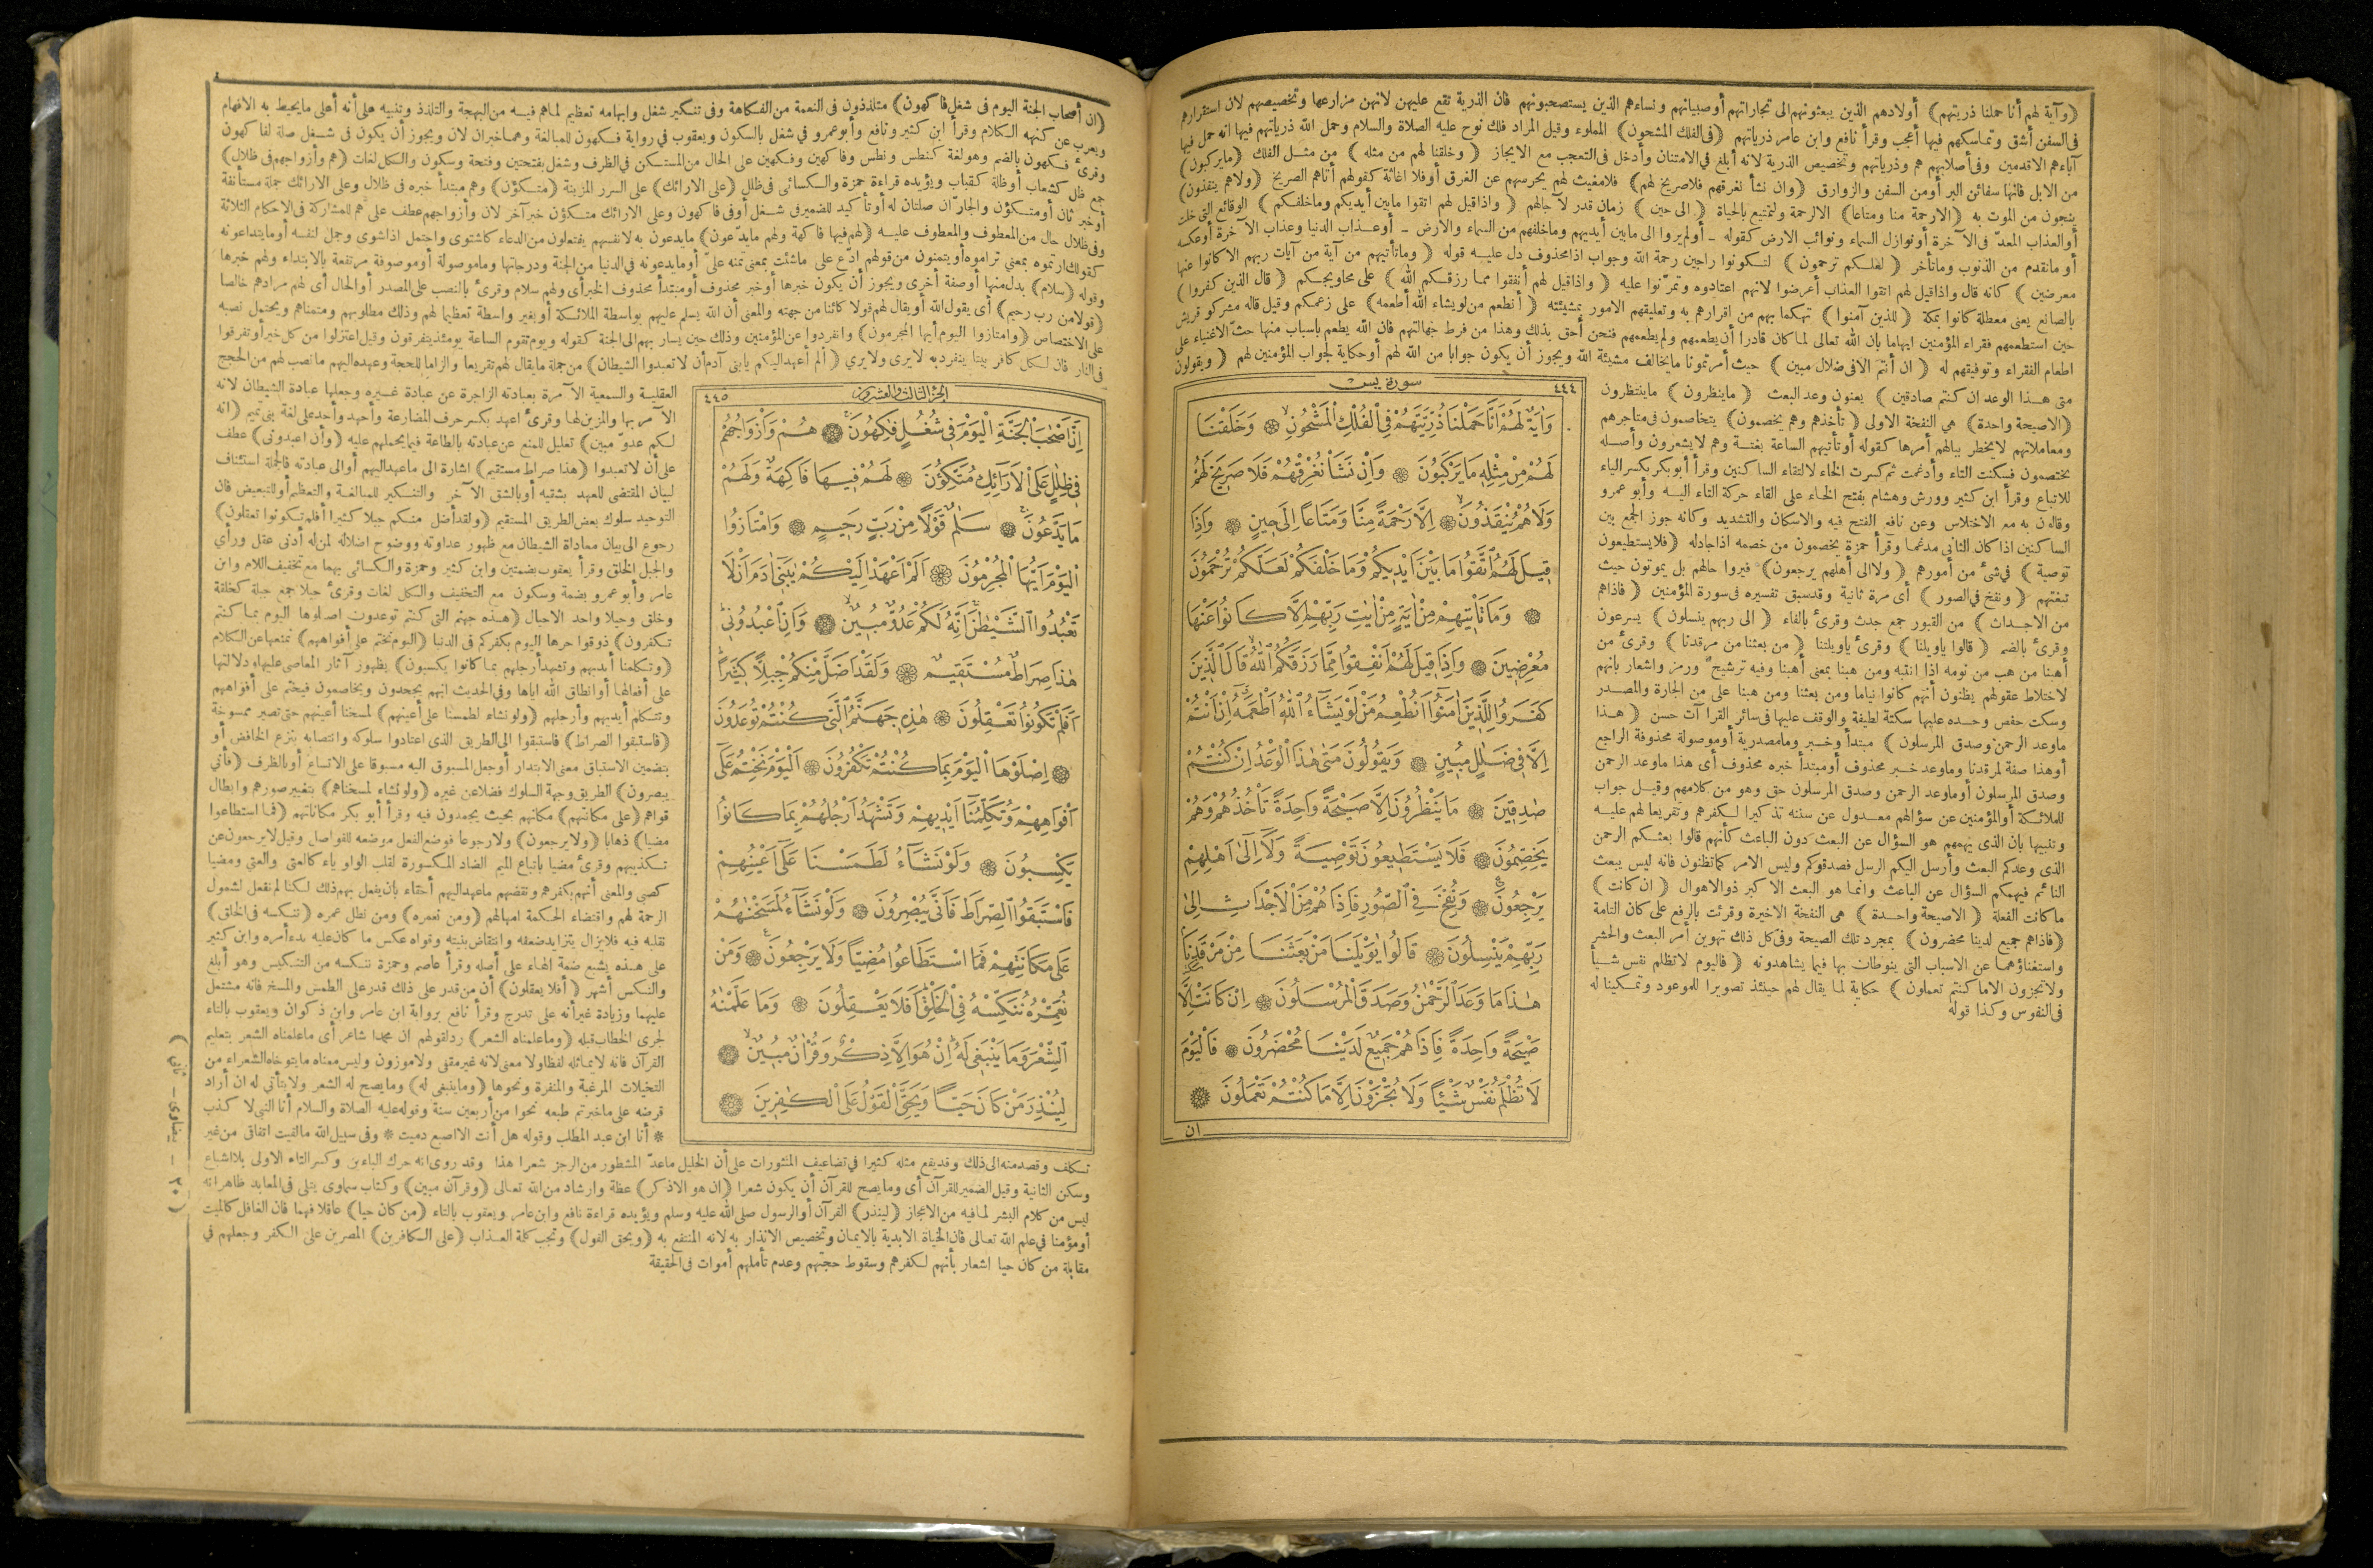 ﴿وآية لهم أنا حملنا ذريتهم﴾ أولادهم الذين يبعثونهم الى تجاراتهم أوصبيانهم ونساءهم الذين يستصحبونهم فان الذرية تقع عليهن لانهن مزارعها وتخصيصهم لان استقرارهم
فى السفن أشق وتماسكهم فيها أعجب وقرأ نافع وابن عامر ذرياتهم ﴿فى الفلك المشحون﴾ المملوء وقيل المراد فلك نوح عليه الصلاة والسلام وحمل الله ذرياتهم فيها انه حمل فيها
آباءهم الاقدمين وفى أصلابهم هم وذرياتهم وتخصيص الذرية لانه أبلغ فى الامتنان وأدخل فى التعجب مع الايجاز ﴿وخلقنا لهم من مثله﴾ من مثل الفلك ﴿مايركبون﴾
من الابل فانها سفائن البر أومن السفن والزوارق ﴿وان نشأ نغرقهم فلاصريخ لهم﴾ فلامغيث لهم يحرسهم عن الغرق أوفلا اغاثة كقولهم أتاهم الصريخ ﴿ولاهم ينقذون﴾
ينجون من الموت به ﴿الارحمة منا ومتاعا﴾ الالرحمة ولتمتيع بالحياة ﴿الى حين﴾ زمان قدر لآجالهم ﴿واذاقيل لهم اتقوا مابين أيديكم وماخلفكم﴾ الوقائع التى خلت
أوالعذاب المعدّ فى الآخرة أونوازل السماء ونوائب الارض كقوله ـ أولم يروا الى مابين أيديهم وماخلفهم من السماء والارض ـ أوعذاب الدنيا وعذاب الآخرة أوعكسه
أو ماتقدم من الذنوب وماتأخر ﴿لعلكم ترحمون﴾ لتكونوا راجين رحمة الله وجواب اذامحذوف دل عليه قوله ﴿وماتأتيهم من آية من آيات ربهم الا كانوا عنها
معرضين﴾ كانه قال واذاقيل لهم اتقوا العذاب أعرضوا لانهم اعتادوه وتمرّنوا عليه ﴿واذاقيل لهم أنفقوا مما رزقكم الله﴾ على محاويجكم ﴿قال الذين كفروا﴾
بالصانع يعنى معطلة كانوا بمكة ﴿للذين آمنوا﴾ تهكما بهم من اقرارهم به وتعليقهم الامور بمشيئته ﴿أنطعم من لويشاء الله أطعمه﴾ على زعمكم وقيل قاله مشركو قريش
حين استطعمهم فقراء المؤمنين ايهاما بأن الله تعالى لما كان قادرا أن يطعمهم ولم يطعمهم فنحن أحق بذلك وهذا من فرط جهالتهم فان الله يطعم بأسباب منها حث الاغنياء على
اطعام الفقراء وتوفيقهم له ﴿ان أنتم الافى ضلال مبين﴾ حيث أمرتمونا مايخالف مشيئة الله ويجوز أن يكون جوابا من الله لهم أوحكاية لجواب المؤمنين لهم ﴿ويقولون
متى هذا الوعد ان كنتم صادقين﴾ يعنون وعد البعث ﴿ماينظرون﴾ ماينتظرون
﴿الاصيحة واحدة﴾ هى النفخة الاولى ﴿تأخذهم وهم يخصمون﴾ يتخاصمون فى متاجرهم
ومعاملاتهم لايخطر ببالهم أمرها كقوله أوتأتيهم الساعة بغتة وهم لايشعرون وأصله
يختصمون فسكنت التاء وأدغمت ثم كسرت الخاء لالتقاء الساكنين وقرأ أبو بكر بكسر الياء
للاتباع وقرأ ابن كثير وورش وهشام بفتح الخاء على القاء حركة التاء اليه وأبو عمرو
وقالون به مع الاختلاس وعن نافع الفتح فيه والاسكان والتشديد وكانه جوز الجمع بين
الساكنين اذا كان الثانى مدغما وقرأ حمزة يخصمون من خصمه اذاجادله ﴿فلايستطيعون
توصية﴾ فى شئ من أمورهم ﴿ولاالى أهلهم يرجعون﴾ فيروا حالهم بل يموتون حيث
تبغتهم ﴿ونفخ فى الصور﴾ أى مرة ثانية وقدسبق تفسيره فى سورة المؤمنين ﴿فاذاهم
من الاجداث﴾ من القبور جمع جدث وقرئ بالفاء ﴿الى ربهم ينسلون﴾ يسرعون
وقرئ بالضم ﴿قالوا ياويلنا﴾ وقرئ ياويلتنا ﴿من بعثنا من مرقدنا﴾ وقرئ من
أهبنا من هب من نومه اذا انتبه ومن هبنا بمعنى أهبنا وفيه ترشيح ورمز واشعار بانهم
لاختلاط عقولهم يظنون أنهم كانوا نياما ومن بعثنا ومن هبنا على من الجارة والمصدر
وسكت حفص وحده عليها سكتة لطيفة والوقف عليها فى سائر القرا آت حسن ﴿هذا
ماوعد الرحمن وصدق المرسلون﴾ مبتدأ وخبر ومامصدرية أوموصولة محذوفة الراجع
أوهذا صفة لمرقدنا وماوعد خبر محذوف أومبتدأ خبره محذوف أى هذا ماوعد الرحمن
وصدق المرسلون أوماوعد الرحمن وصدق المرسلون حق وهو من كلامهم وقيل جواب
للملائكة أوالمؤمنين عن سؤالهم معدول عن سننه تذكيرا لكفرهم وتقريعا لهم عليه
وتنبيها بان الذى يهمهم هو السؤال عن البعث دون الباعث كأنهم قالوا بعثكم الرحمن
الذى وعدكم البعث وأرسل اليكم الرسل فصدقوكم وليس الامر كماتظنون فانه ليس يبعث
النائم فيهمكم السؤال عن الباعث وانما هو البعث الاكبر ذوالاهوال ﴿ان كانت﴾
ما كانت الفعلة ﴿الاصيحة واحدة﴾ هى النفخة الاخيرة وقرئت بالرفع على كان التامة
﴿فاذاهم جميع لدينا محضرون﴾ بمجرد تلك الصيحة وفى كل ذلك تهوين أمر البعث والحشر
واستغناؤهما عن الاسباب التى ينوطان بها فيما يشاهدونه ﴿فاليوم لاتظلم نفس شيأ
ولاتجزون الاما كنتم تعملون﴾ حكاية لما يقال لهم حينئذ تصويرا للموعود وتمكينا له
فى النفوس وكذا قوله
٤٤٤ سورة يس
وَاٰيَةٌ لَهُمْ اَنَّا حَمَلْنَا ذُرِّيَّتَهُمْ فِى الْفُلْكِ الْمَشْحُونِ ۞ وَخَلَقْنَا
لَهُمْ مِنْ مِثْلِهِ مَا يَرْكَبُونَ ۞ وَاِنْ نَشَأْ نُغْرِقْهُمْ فَلَا صَرِيخَ لَهُمْ
وَلَا هُمْ يُنْقَذُونَ ۞ اِلَّا رَحْمَةً مِنَّا وَمَتَاعًا اِلٰى حِينٍ ۞ وَاِذَا
قِيلَ لَهُمُ اتَّقُوا مَا بَيْنَ اَيْدِيكُمْ وَمَا خَلْفَكُمْ لَعَلَّكُمْ تُرْحَمُونَ
۞ وَمَا تَأْتِيهِمْ مِنْ اٰيَةٍ مِنْ اٰيَاتِ رَبِّهِمْ اِلَّا كَانُوا عَنْهَا
مُعْرِضِينَ ۞ وَاِذَا قِيلَ لَهُمْ اَنْفِقُوا مِمَّا رَزَقَكُمُ اللّٰهُ قَالَ الَّذِينَ
كَفَرُوا لِلَّذِينَ اٰمَنُوا اَنُطْعِمُ مَنْ لَوْ يَشَاءُ اللّٰهُ اَطْعَمَهُ اِنْ اَنْتُمْ
اِلَّا فِى ضَلَالٍ مُبِينٍ ۞ وَيَقُولُونَ مَتٰى هٰذَا الْوَعْدُ اِنْ كُنْتُمْ
صَادِقِينَ ۞ مَا يَنْظُرُونَ اِلَّا صَيْحَةً وَاحِدَةً تَأْخُذُهُمْ وَهُمْ
يَخِصِّمُونَ ۞ فَلَا يَسْتَطِيعُونَ تَوْصِيَةً وَلَا اِلٰى اَهْلِهِمْ
يَرْجِعُونَ ۞ وَنُفِخَ فِى الصُّورِ فَاِذَا هُمْ مِنَ الْاَجْدَاثِ اِلٰى
رَبِّهِمْ يَنْسِلُونَ ۞ قَالُوا يَا وَيْلَنَا مَنْ بَعَثَنَا مِنْ مَرْقَدِنَا
هٰذَا مَا وَعَدَ الرَّحْمٰنُ وَصَدَقَ الْمُرْسَلُونَ ۞ اِنْ كَانَتْ اِلَّا
صَيْحَةً وَاحِدَةً فَاِذَا هُمْ جَمِيعٌ لَدَيْنَا مُحْضَرُونَ ۞ فَالْيَوْمَ
لَا تُظْلَمُ نَفْسٌ شَيْئًا وَلَا تُجْزَوْنَ اِلَّا مَا كُنْتُمْ تَعْمَلُونَ ۞
ان
﴿ان أصحاب الجنة اليوم فى شغل فاكهون﴾ متلذذون فى النعمة من الفكاهة وفى تنكير شغل وابهامه تعظيم لماهم فيه من البهجة والتلذذ وتنبيه على أنه أعلى مايحيط به الافهام
ويعرب عن كنهه الكلام وقرأ ابن كثير ونافع وأبوعمرو فى شغل بالسكون ويعقوب فى رواية فكهون للمبالغة وهماخبران لان ويجوز أن يكون فى شغل صلة لفاكهون
وقرئ فكهون بالضم وهولغة كنطس ونطس وفاكهين وفكهين على الحال من المستكن فى الظرف وشغل بفتحتين وفتحة وسكون والكل لغات ﴿هم وأزواجهم فى ظلال﴾
جمع ظل كشعاب أوظلة كقباب ويؤيده قراءة حمزة والكسائى فى ظلل ﴿على الارائك﴾ على السرر المزينة ﴿متكؤن﴾ وهم مبتدأ خبره فى ظلال وعلى الارائك جملة مستأنفة
أوخبر ثان أومتكؤن والجارّان صلتان له أوتأكيد للضمير فى شغل أوفى فاكهون وعلى الارائك متكؤن خبر آخر لان وأزواجهم عطف على هم للمشاركة فى الاحكام الثلاثة
وفى ظلال حال من المعطوف والمعطوف عليه ﴿لهم فيها فاكهة ولهم مايدّعون﴾ مايدعون به لانفسهم يفتعلون من الدعاء كاشتوى واجتمل اذاشوى وجمل لنفسه أومايتداعونه
كقولك ارتموه بمعنى تراموه أويتمنون من قولهم ادّع على ماشئت بمعنى تمنه علىّ أومايدعونه فى الدنيا من الجنة ودرجاتها وماموصولة أوموصوفة مرتفعة بالابتداء ولهم خبرها
وقوله ﴿سلام﴾ بدل منها أوصفة أخرى ويجوز أن يكون خبرها أوخبر محذوف أومبتدأ محذوف الخبر أى ولهم سلام وقرئ بالنصب على المصدر أوالحال أى لهم مرادهم خالصا
﴿قولامن رب رحيم﴾ أى يقول الله أويقال لهم قولا كائنا من جهته والمعنى أن الله يسلم عليهم بواسطة الملائكة أوبغير واسطة تعظيما لهم وذلك مطلوبهم ومتمناهم ويحتمل نصبه
على الاختصاص ﴿وامتازوا اليوم أيها المجرمون﴾ وانفردوا عن المؤمنين وذلك حين يسار بهم الى الجنة كقوله ويوم تقوم الساعة يومئذ يتفرقون وقيل اعتزلوا من كل خير أوتفرقوا
فى النار فان لكل كافر بيتا ينفرد به لايرى ولايرى ﴿ألم أعهد اليكم يابنى آدم أن لاتعبدوا الشيطان﴾ من جملة مايقال لهم تقريعا والزاما للحجة وعهده اليهم مانصب لهم من الحجج
العقلية والسمعية الآمرة بعبادته الزاجرة عن عبادة غيره وجعلها عبادة الشيطان لانه
الآمر بها والمزين لها وقرئ اعهد بكسر حرف المضارعة وأحهد وأحد على لغة بنى تميم ﴿انه
لكم عدوّ مبين﴾ تعليل للمنع عن عبادته بالطاعة فيمايحملهم عليه ﴿وأن اعبدونى﴾ عطف
على أن لاتعبدوا ﴿هذا صراط مستقيم﴾ اشارة الى ماعهد اليهم أوالى عبادته فالجملة استئناف
لبيان المقتضى للعهد بشقيه أوبالشق الآخر والتنكير للمبالغة والتعظيم أوللتبعيض فان
التوحيد سلوك بعض الطريق المستقيم ﴿ولقد أضل منكم جبلا كثيرا أفلم تكونوا تعقلون﴾
رجوع الى بيان معاداة الشيطان مع ظهور عداوته ووضوح اضلاله لمن له أدنى عقل ورأى
والجبل الخلق وقرأ يعقوب بضمتين وابن كثير وحمزة والكسائى بهما مع تخفيف اللام وابن
عامر وأبو عمرو بضمة وسكون مع التخفيف والكل لغات وقرئ جبلا جمع جبلة كخلقة
وخلق وجيلا واحد الاجيال ﴿هذه جهنم التى كنتم توعدون اصلوها اليوم بما كنتم
تكفرون﴾ ذوقوا حرها اليوم بكفركم فى الدنيا ﴿اليوم نختم على أفواههم﴾ نمنعها عن الكلام
﴿وتكلمنا أيديهم وتشهد أرجلهم بما كانوا يكسبون﴾ بظهور آثار المعاصى عليها ودلالتها
على أفعالها أوانطاق الله اياها وفى الحديث انهم يجحدون ويخاصمون فيختم على أفواههم
وتتكلم أيديهم وأرجلهم ﴿ولونشاء لطمسنا على أعينهم﴾ لمسخنا أعينهم حتى تصير ممسوحة
﴿فاستبقوا الصراط﴾ فاستبقوا الى الطريق الذى اعتادوا سلوكه وانتصابه بنزع الخافض أو
بتضمين الاستباق معنى الابتدار أوجعل المسبوق اليه مسبوقا على الاتساع أوبالظرف ﴿فأنى
يبصرون﴾ الطريق وجهة السلوك فضلاعن غيره ﴿ولونشاء لمسخناهم﴾ بتغيير صورهم وابطال
قواهم ﴿على مكانتهم﴾ مكانهم بحيث يجمدون فيه وقرأ أبو بكر مكاناتهم ﴿فما استطاعوا
مضيا﴾ ذهابا ﴿ولايرجعون﴾ ولارجوعا فوضع الفعل موضعه للفواصل وقيل لايرجعون عن
تكذيبهم وقرئ مضيا باتباع الميم الضاد المكسورة لقلب الواو ياء كالعتى والعتى ومضيا
كصبى والمعنى أنهم بكفرهم ونقضهم ماعهد اليهم أحقاء بان يفعل بهم ذلك لكنا لم نفعل لشمول
الرحمة لهم واقتضاء الحكمة امهالهم ﴿ومن نعمره﴾ ومن نطل عمره ﴿ننكسه فى الخلق﴾
نقلبه فيه فلايزال يتزايد ضعفه وانتقاض بنيته وقواه عكس ما كان عليه بدء أمره وابن كثير
على هذه يشبع ضمة الهاء على أصله وقرأ عاصم وحمزة ننكسه من التنكيس وهو أبلغ
والنكس أشهر ﴿أفلا يعقلون﴾ أن من قدر على ذلك قدر على الطمس والمسخ فانه مشتمل
عليهما وزيادة غير أنه على تدرج وقرأ نافع برواية ابن عامر وابن ذكوان ويعقوب بالتاء
لجرى الخطاب قبله ﴿وماعلمناه الشعر﴾ رد لقولهم ان محمدا شاعر أى ماعلمناه الشعر بتعليم
القرآن فانه لايماثله لفظا ولا معنى لانه غير مقفى ولاموزون وليس معناه مايتوخاه الشعراء من
التخيلات المرغبة والمنفرة ونحوها ﴿وماينبغى له﴾ ومايصح له الشعر ولايتأتى له ان أراد
قرضه على ماخبرتم طبعه نحوا من أربعين سنة وقوله عليه الصلاة والسلام أنا النبى لا كذب
* أنا ابن عبد المطلب وقوله هل أنت الااصبع دميت * وفى سبيل الله مالقيت اتفاق من غير
تكلف وقصد منه الى ذلك وقديقع مثله كثيرا فى تضاعيف المنثورات على أن الخليل ماعدّ المشطور من الرجز شعرا هذا وقد روى انه حرك الباءين وكسر التاء الاولى بلااشباع
وسكن الثانية وقيل الضمير للقرآن أى ومايصح للقرآن أن يكون شعرا ﴿ان هو الاذكر﴾ عظة وارشاد من الله تعالى ﴿وقرآن مبين﴾ وكتاب سماوى يتلى فى المعابد ظاهر انه
ليس من كلام البشر لمافيه من الاعجاز ﴿لينذر﴾ القرآن أوالرسول صلى الله عليه وسلم ويؤيده قراءة نافع وابن عامر ويعقوب بالتاء ﴿من كان حيا﴾ عاقلا فهما فان الغافل كالميت
أومؤمنا فى علم الله تعالى فان الحياة الابدية بالايمان وتخصيص الانذار به لانه المنتفع به ﴿ويحق القول﴾ وتجب كلمة العذاب ﴿على الكافرين﴾ المصرين على الكفر وجعلهم فى
مقابلة من كان حيا اشعار بأنهم لكفرهم وسقوط حجتهم وعدم تأملهم أموات فى الحقيقة
الجزء الثالث والعشرون ٤٤٥
اِنَّ اَصْحَابَ الْجَنَّةِ الْيَوْمَ فِى شُغُلٍ فَاكِهُونَ ۞ هُمْ وَاَزْوَاجُهُمْ
فِى ظِلَالٍ عَلَى الْاَرَائِكِ مُتَّكِؤُنَ ۞ لَهُمْ فِيهَا فَاكِهَةٌ وَلَهُمْ
مَا يَدَّعُونَ ۞ سَلَامٌ قَوْلًا مِنْ رَبٍّ رَحِيمٍ ۞ وَامْتَازُوا
الْيَوْمَ اَيُّهَا الْمُجْرِمُونَ ۞ اَلَمْ اَعْهَدْ اِلَيْكُمْ يَا بَنِى اٰدَمَ اَنْ لَا
تَعْبُدُوا الشَّيْطَانَ اِنَّهُ لَكُمْ عَدُوٌّ مُبِينٌ ۞ وَاَنِ اعْبُدُونِى
هٰذَا صِرَاطٌ مُسْتَقِيمٌ ۞ وَلَقَدْ اَضَلَّ مِنْكُمْ جِبِلًّا كَثِيرًا
اَفَلَمْ تَكُونُوا تَعْقِلُونَ ۞ هٰذِهِ جَهَنَّمُ الَّتِى كُنْتُمْ تُوعَدُونَ
۞ اِصْلَوْهَا الْيَوْمَ بِمَا كُنْتُمْ تَكْفُرُونَ ۞ اَلْيَوْمَ نَخْتِمُ عَلٰى
اَفْوَاهِهِمْ وَتُكَلِّمُنَا اَيْدِيهِمْ وَتَشْهَدُ اَرْجُلُهُمْ بِمَا كَانُوا
يَكْسِبُونَ ۞ وَلَوْ نَشَاءُ لَطَمَسْنَا عَلٰى اَعْيُنِهِمْ
فَاسْتَبَقُوا الصِّرَاطَ فَاَنّٰى يُبْصِرُونَ ۞ وَلَوْ نَشَاءُ لَمَسَخْنَاهُمْ
عَلٰى مَكَانَتِهِمْ فَمَا اسْتَطَاعُوا مُضِيًّا وَلَا يَرْجِعُونَ ۞ وَمَنْ
نُعَمِّرْهُ نُنَكِّسْهُ فِى الْخَلْقِ اَفَلَا يَعْقِلُونَ ۞ وَمَا عَلَّمْنَاهُ
الشِّعْرَ وَمَا يَنْبَغِى لَهُ اِنْ هُوَ اِلَّا ذِكْرٌ وَقُرْاٰنٌ مُبِينٌ ۞
لِيُنْذِرَ مَنْ كَانَ حَيًّا وَيَحِقَّ الْقَوْلُ عَلَى الْكَافِرِينَ ۞
(٢٠ ـ بيضاوى ـ ثانى)